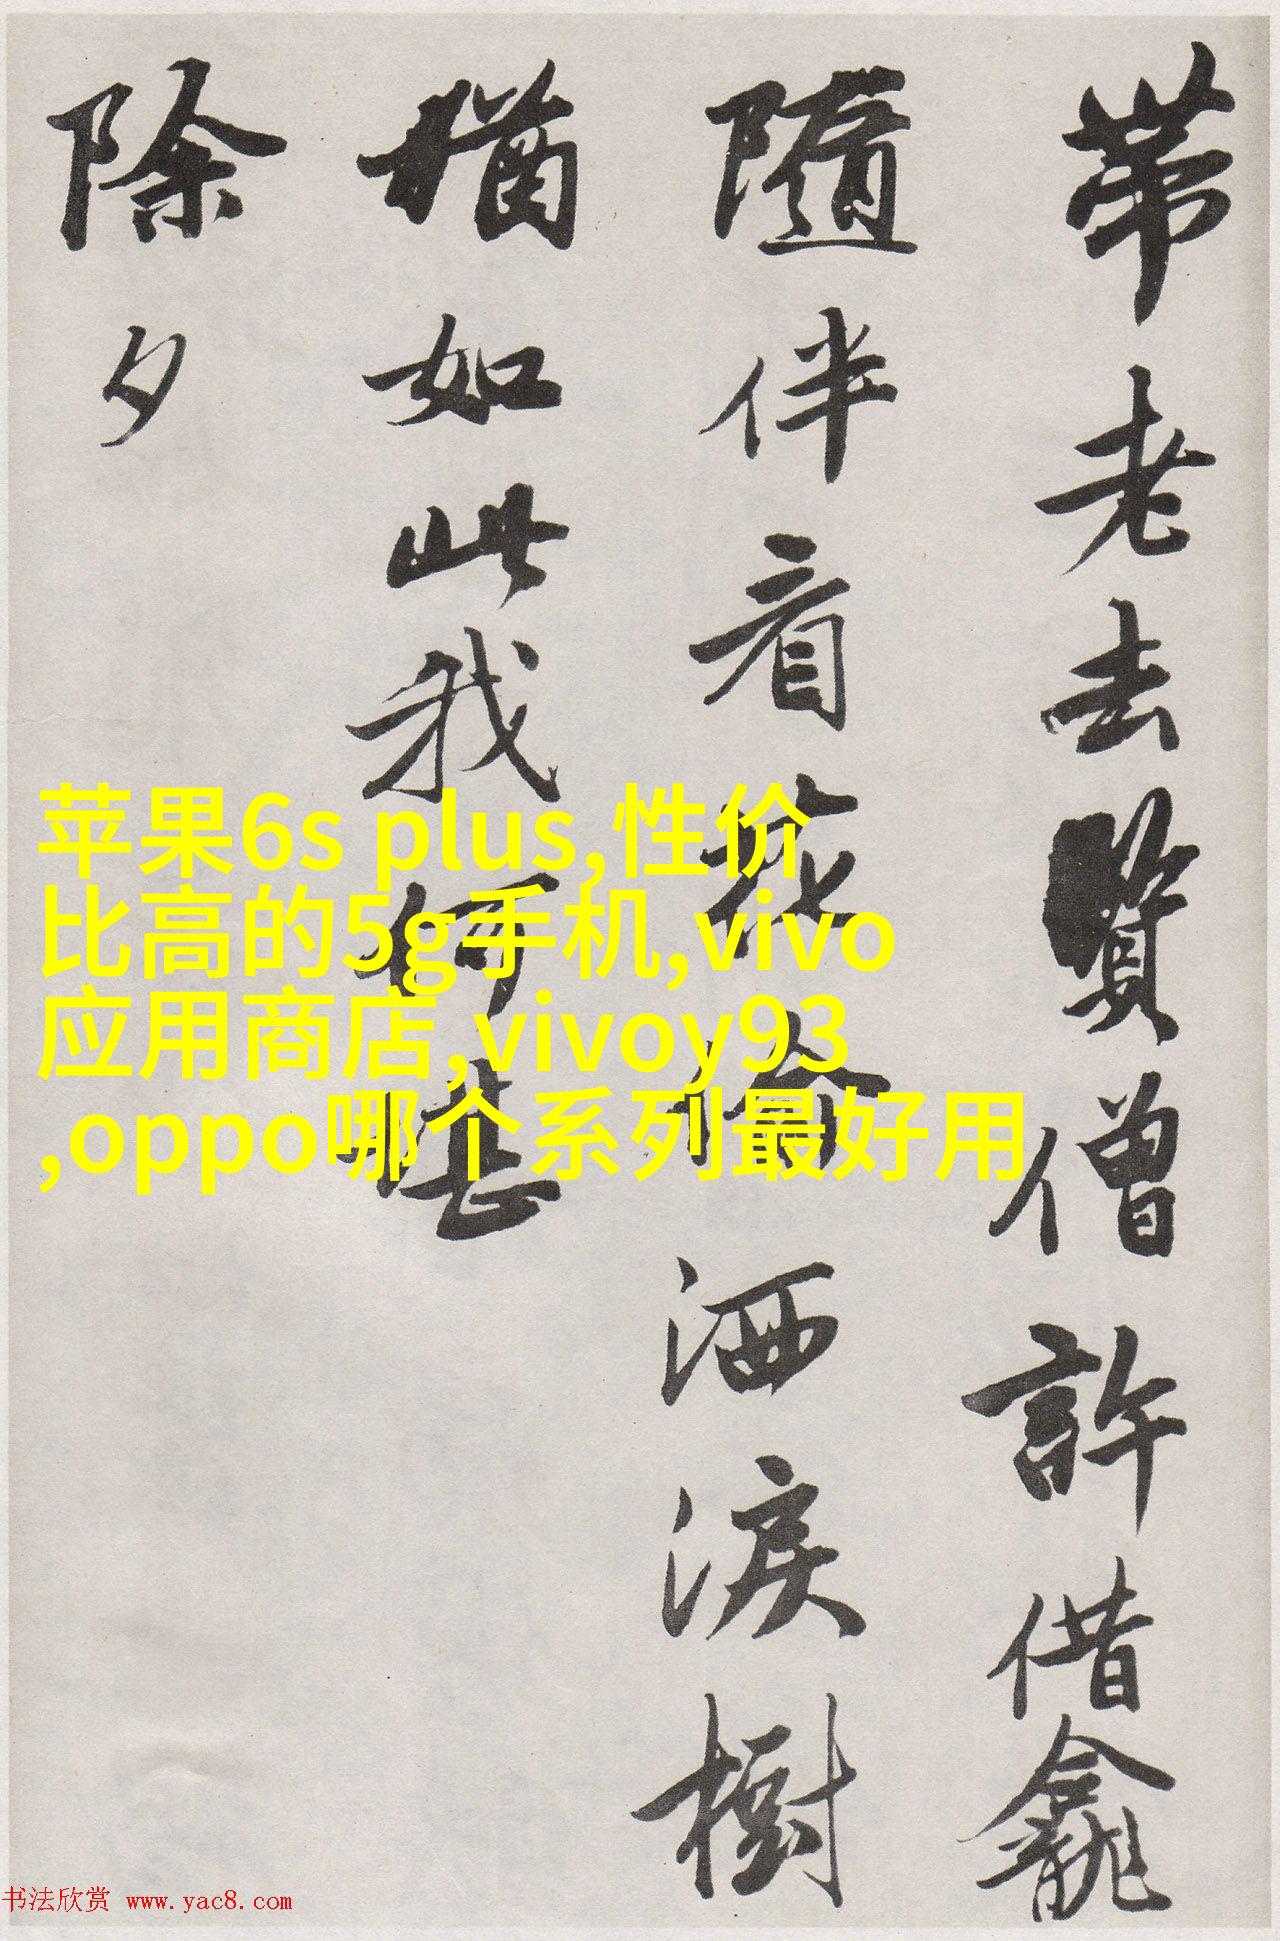 帶老去賢僧許借龕
隨伴看花偷洒淚樹
猶如此我何堪
除夕
苹果6s plus,性价
比高的5g手机,vivo
应用商店,vivoy93
,oppo哪个系列最好用
书法欣赏 www.yac8.com